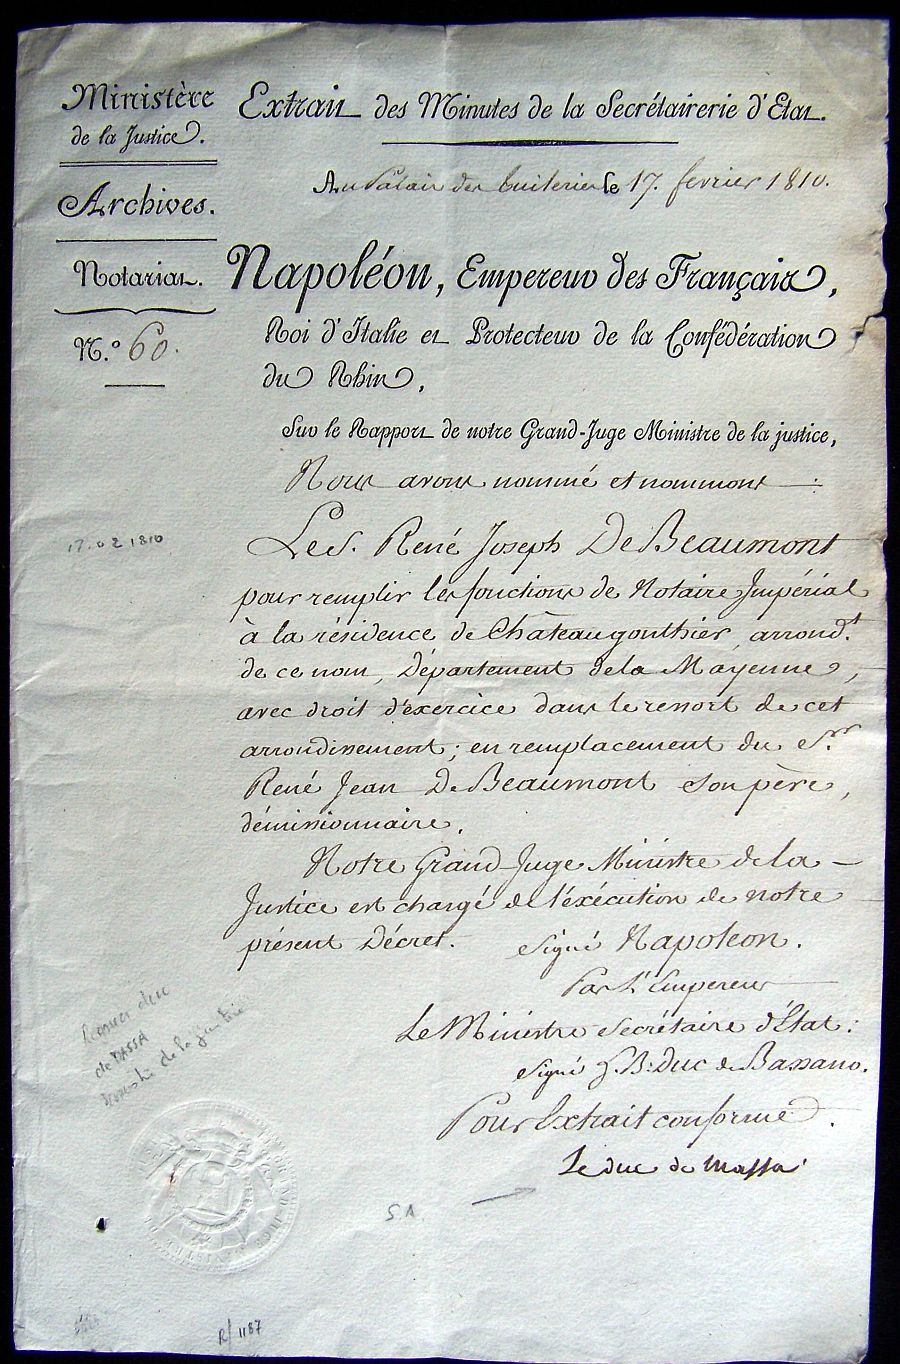 Ministère
de la Justice.
Archives.
Notariat.
N.º 60.
Extrait des Minutes de la Secrétairerie d'Etat.
Au Palais des tuileries le 17. fevrier 1810.
Napoléon, Empereur des Français,
Roi d'Italie et Protecteur de la Confédération
du Rhin,
Sur le Rapport de notre Grand-Juge Ministre de la justice,
Nous avons nommé et nommons
Le S. René Joseph De Beaumont
pour remplir les fonctions de Notaire Impérial
à la résidence de Châteaugonthier arrond.t
de ce nom, Département de la Mayenne,
avec droit d'exercice dans le ressort de cet
arrondissement; en remplacement du S.r
René Jean De Beaumont son père,
démissionnaire.
Notre Grand-Juge Ministre de la
Justice est chargé de l'éxécution de notre
présent Décret.
Signé Napoleon.
Par L'Empereur
Le Ministre Secrétaire d'État:
Signé H.B. Duc de Bassano.
Pour Extrait conforme.
Le duc de Massa
17.02 1810
Regnier duc
de MASSA
ministre de la justice
S.A.
R/ 1187